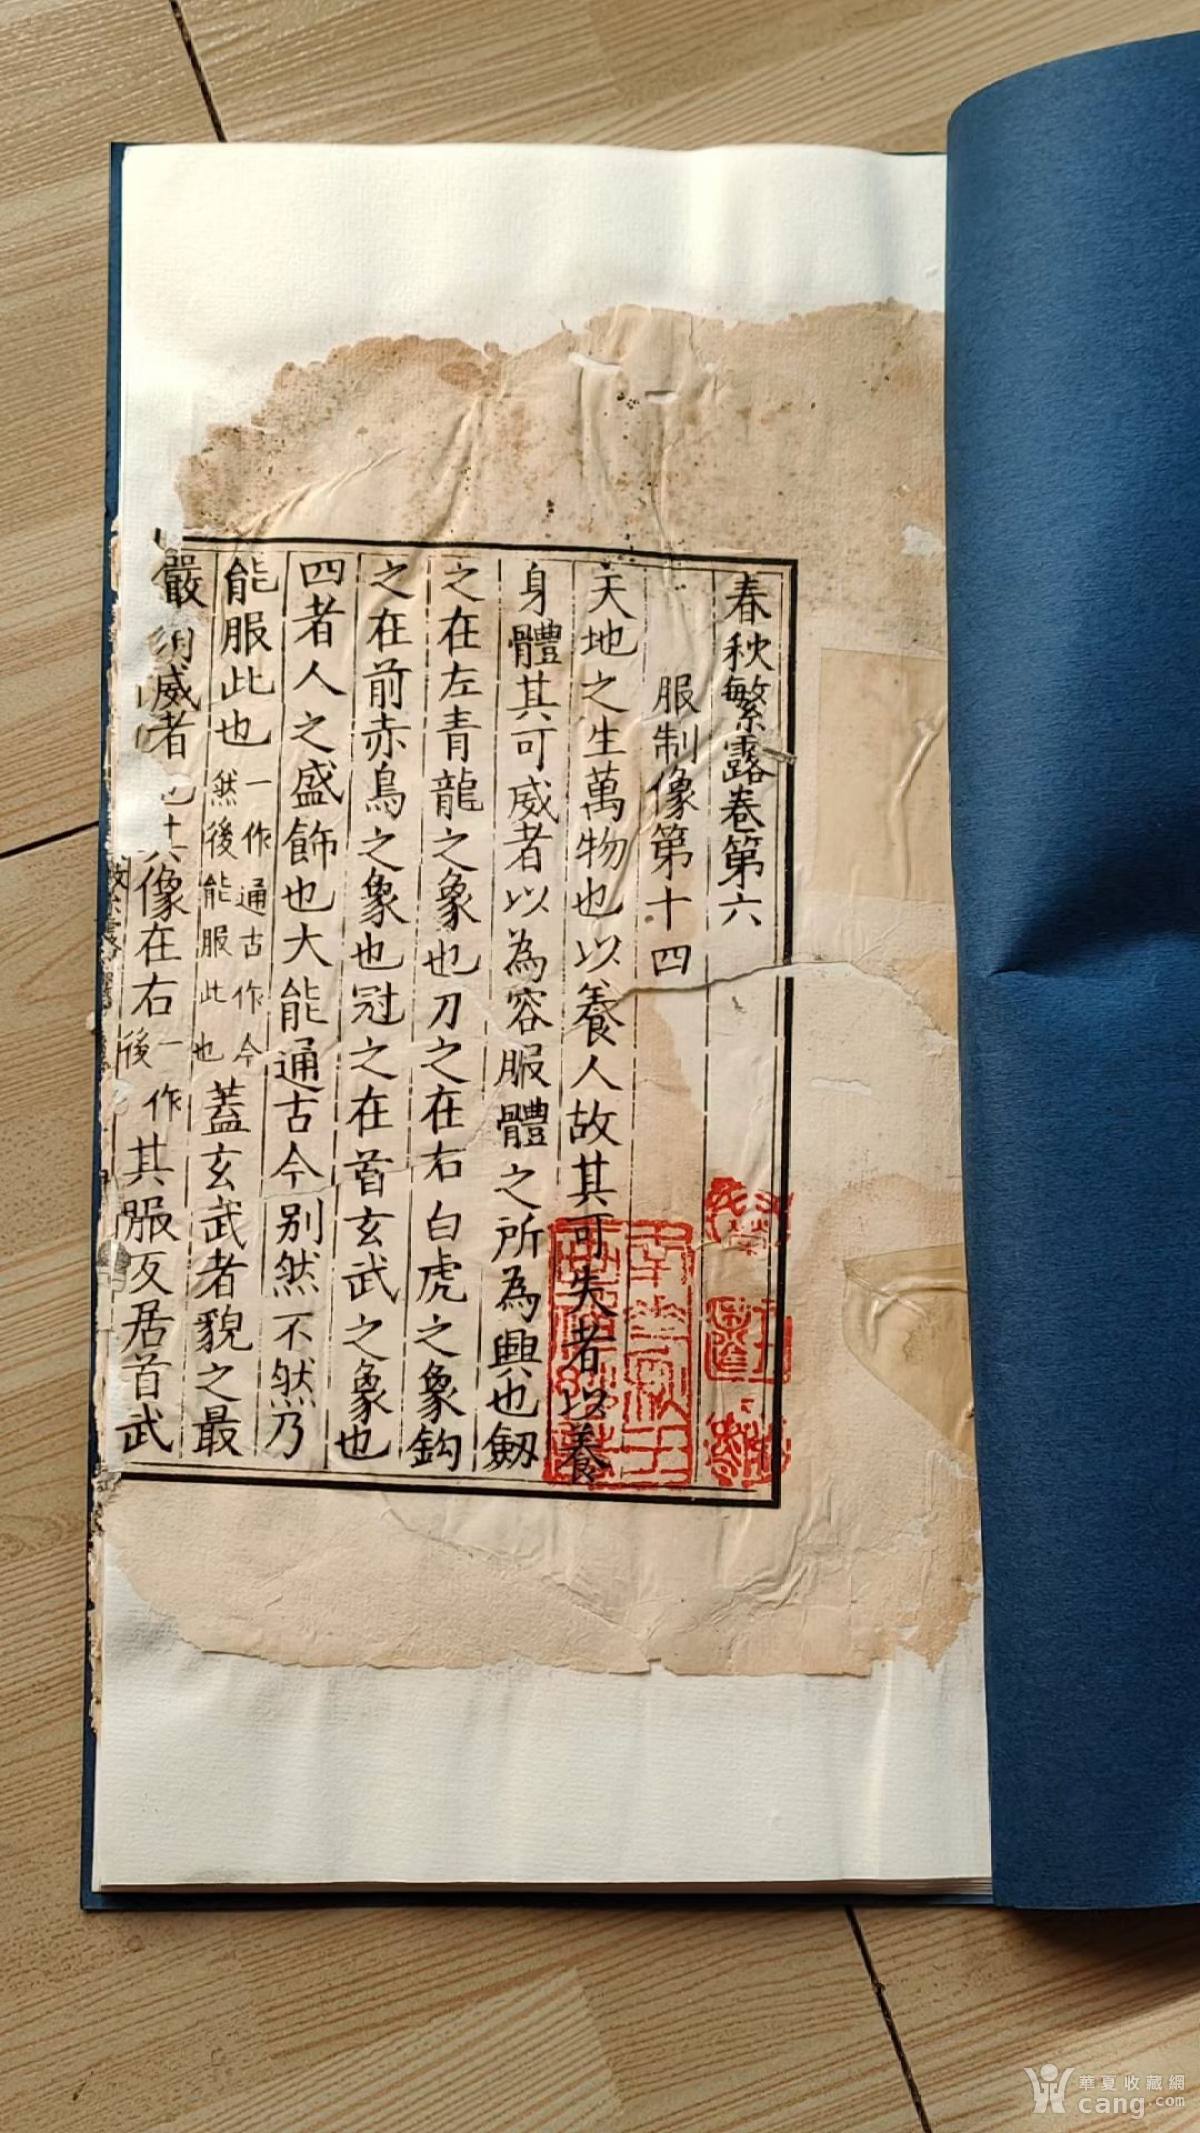 春秋繁露卷第六
服制像第十四
天地之生萬物也以養人故其可失者以養
身體其可威者以為容服體之所為興也劔
之在左青龍之象也刀之在右白虎之象鈎
之在前赤鳥之象也冠之在首玄武之象也
四者人之盛飾也大能通古今别然不然乃
能服此也一作通古作今然後能服此也蓋玄武者貌之最
嚴 威者也其像在右一作後其服反居首武
華夏收藏網
cang.com